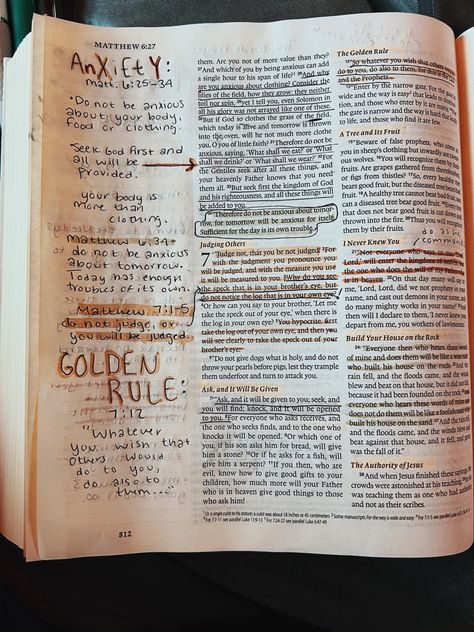 MATTHEW 6:27
AnXiEtY:
matt. 6:25-34
· Do not be anxious
about your body,
food or clothing.
Seek God first and
all will be
provided.
your body is
more than
clothing.
Matthew 6:34-
do not be anxious
about tomorrow.
Today has enough
troubles of its own.
Matthew 7:1-5
do not judge, or
you will be judged
GOLDEN
RULE:
7:12
"Whatever
you wish that
others would
do to you,
do also to
them...
812
them. Are you not of more value than they?
27And which of you by being anxious can add
a single hour to his span of life? 28And why
are you anxious about clothing? Consider the
lilies of the field, how they grow: they neither
toil nor spin, 29yet I tell you, even Solomon in
all his glory was not arrayed like one of these.
30But if God so clothes the grass of the field,
which today is alive and tomorrow is thrown
into the oven, will he not much more clothe
you, O you of little faith? 31Therefore do not be
anxious, saying, 'What shall we eat?' or 'What
shall we drink?' or 'What shall we wear?' 32For
the Gentiles seek after all these things, and
your heavenly Father knows that you need
them all. 33But seek first the kingdom of God
and his righteousness, and all these things will
be added to you.
34"Therefore do not be anxious about tomor-
row, for tomorrow will be anxious for itself.
Sufficient for the day is its own trouble.
Judging Others
7 "Judge not, that you be not judged. 2For
with the judgment you pronounce you
will be judged, and with the measure you use
it will be measured to you. 3Why do you see
the speck that is in your brother's eye, but
do not notice the log that is in your own eye?
4Or how can you say to your brother, 'Let me
take the speck out of your eye,' when there is
the log in your own eye? 5You hypocrite, first
take the log out of your own eye, and then you
will see clearly to take the speck out of your
brother's eye.
6"Do not give dogs what is holy, and do not
throw your pearls before pigs, lest they trample
them underfoot and turn to attack you.
Ask, and It Will Be Given
7"Ask, and it will be given to you; seek, and
you will find; knock, and it will be opened
to you. 8For everyone who asks receives, and
the one who seeks finds, and to the one who
knocks it will be opened. 9Or which one of
you, if his son asks him for bread, will give
him a stone? 10Or if he asks for a fish, will
give him a serpent? 11If you then, who are
evil, know how to give good gifts to your
children, how much more will your Father
who is in heaven give good things to those
who ask him!
The Golden Rule
12"So whatever you wish that others would
do to you, do also to them, for this is the Law
and the Prophets.
13"Enter by the narrow gate. For the gate is
wide and the way is easy that leads to destruc-
tion, and those who enter by it are many. 14For
the gate is narrow and the way is hard that leads
to life, and those who find it are few.
A Tree and Its Fruit
15"Beware of false prophets, who come to
you in sheep's clothing but inwardly are raven-
ous wolves. 16You will recognize them by their
fruits. Are grapes gathered from thornbushes,
or figs from thistles? 17So, every healthy tree
bears good fruit, but the diseased tree bears bad
fruit. 18A healthy tree cannot bear bad fruit, nor
can a diseased tree bear good fruit. 19Every tree
that does not bear good fruit is cut down and
thrown into the fire. 20Thus you will recognize
them by their fruits.
do as he
commands
I Never Knew You
21"Not everyone who says to me, 'Lord,
Lord,' will enter the kingdom of heaven, but
the one who does the will of my Father who
is in heaven. 22On that day many will say to
me, 'Lord, Lord, did we not prophesy in your
name, and cast out demons in your name, and
do many mighty works in your name?' 23And
then will I declare to them, 'I never knew you;
depart from me, you workers of lawlessness.'
Build Your House on the Rock
24"Everyone then who hears these words
of mine and does them will be like a wise man
who built his house on the rock. 25And the
rain fell, and the floods came, and the winds
blew and beat on that house, but it did not fall,
because it had been founded on the rock. 26And
everyone who hears these words of mine and
does not do them will be like a foolish man who
built his house on the sand. 27And the rain fell,
and the floods came, and the winds blew and
beat against that house, and it fell, and great
was the fall of it."
The Authority of Jesus
28And when Jesus finished these sayings, the
crowds were astonished at his teaching, 29for he
was teaching them as one who had authority,
and not as their scribes.
1 Or a single cubit to his stature; a cubit was about 18 inches or 45 centimeters 2 Some manuscripts For the way is wide and easy